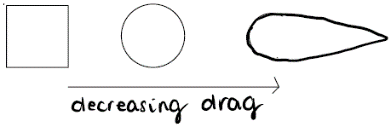 decreasing drag